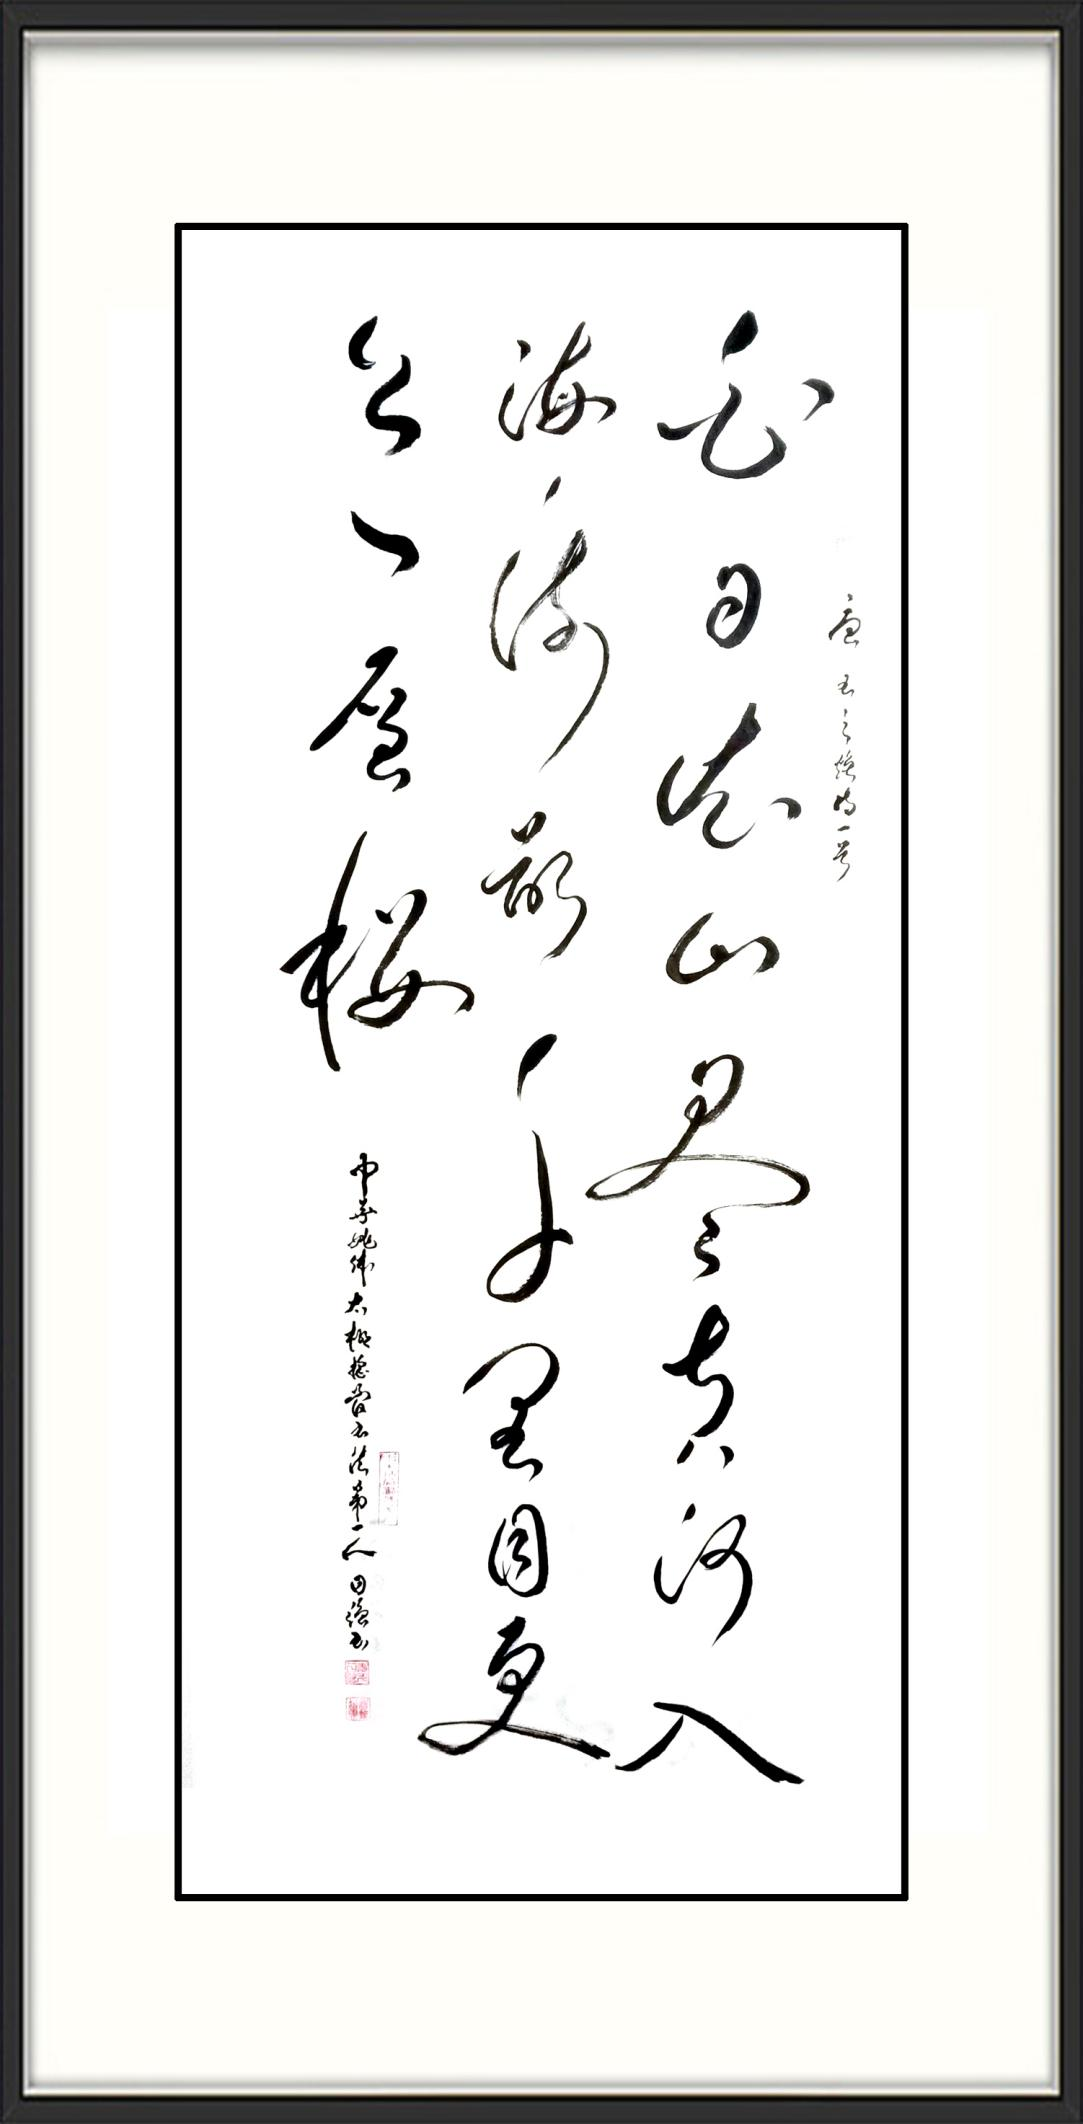 唐王之焕诗一首
白日依山尽黄河入
海流欲穷千里目更
上一层楼
中华姚体太极书法第一人田强书